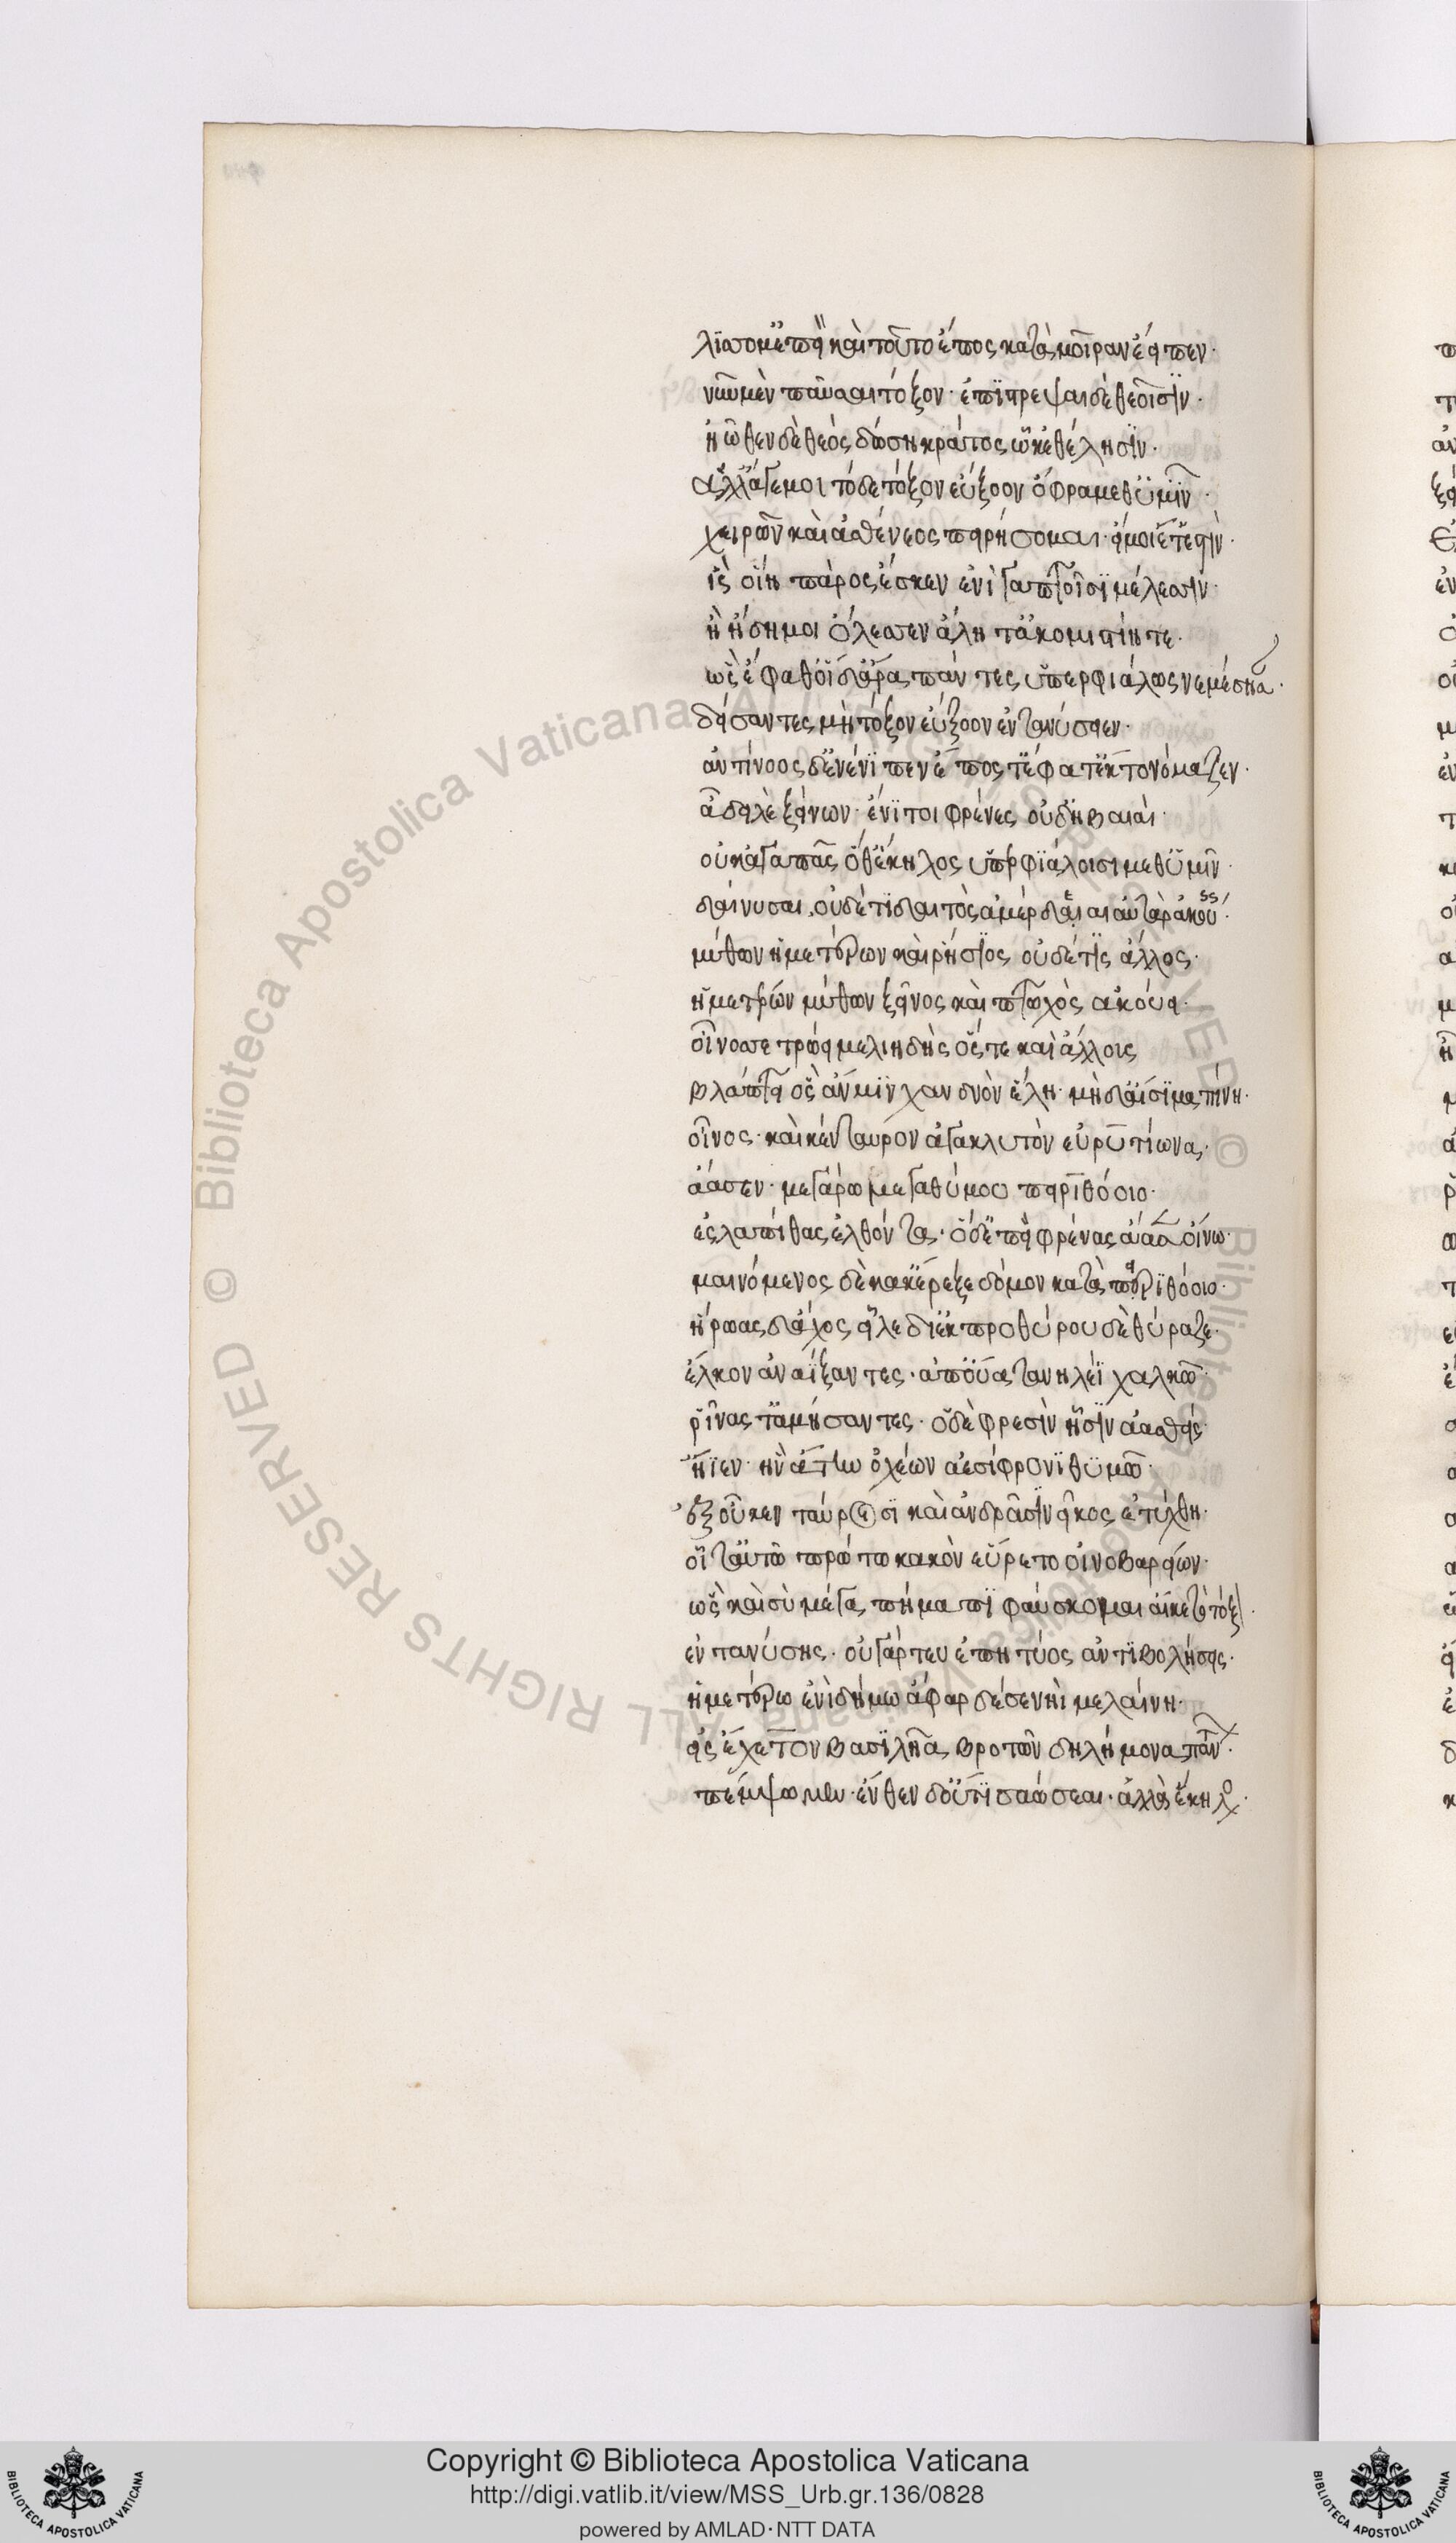 λίσσομ' ἐπεὶ καὶ τοῦτο ἔπος κατὰ μοῖραν ἔειπεν·
νῦν μὲν παῦσαι τόξον· ἐπιτρέψαι δὲ θεοῖσιν·
ἠῶθεν δὲ θεὸς δώσῃ κράτος ᾧ κ' ἐθέλησιν·
ἀλλ' ἄγε μοι τόδε τόξον ἐύξοον ὄφρα μεθ' ὑμῖν·
χειρῶν καὶ σθένεος πειρήσομαι· εἴ μοι ἔτ' ἐστὶν·
ἲς οἵη πάρος ἔσκεν ἐνὶ γαπτοῖσι μέλεσσιν·
ἢ ἤδη μοι ὄλεσσεν ἄλη τ' ἀκομιστίη τε·
ὣς ἔφαθ' οἱ δ' ἄρα πάντες ὑπερφιάλως νεμέσησα
δείσαντες μὴ τόξον ἐύξοον ἐντανύσειεν·
ἀντίνοος δ' ἐνένιπεν ἔπος τ' ἔφατ' ἔκ τ' ὀνόμαζεν·
ἆ δειλὲ ξείνων· ἔνι τοι φρένες οὐδ' ἠβαιαὶ·
οὐκ ἀγαπᾶς ὃ θ' ἕκηλος ὑπερφιάλοισι μεθ' ὑμῖν·
δαίνυσαι, οὐδέ τι δαιτὸς ἀμέρδεαι αὐτὰρ ἀκού
μύθων ἡμετέρων καὶ ῥήσιος οὐδέ τις ἄλλος·
ἡμετέρων μύθων ξεῖνος καὶ πτωχὸς ἀκούει·
οἶνος σε τρώει μελιηδὴς ὅς τε καὶ ἄλλους
βλάπτει ὃς ἄν μιν χανδὸν ἕλῃ· μὴ δ' αἴσιμα πίνῃ·
οἶνος· καὶ κένταυρον ἀγακλυτὸν εὐρυτίωνα,
ἄασεν· μεγάρῳ μεγαθύμου πειριθόοιο·
ἐς λαπίθας ἐλθόντα· ὁ δ' ἐπεὶ φρένας ἄασεν οἴνῳ·
μαινόμενος δὲ κάκ' ἔρεξε δόμον κατὰ πειριθόοιο·
ἥρωας δ' ἄχος εἷλε διὲκ προθύρου δὲ θύραζε·
ἕλκον ἀναΐξαντες· ἀπ' οὔατα νηλέϊ χαλκῷ·
ῥῖνας τ' ἀμήσαντες· ὁ δὲ φρεσὶν ᾗσιν ἀασθεὶς·
ἤϊεν· ἣν ἄτην ὀχέων ἀεσίφρονι θυμῷ·
ἐξ οὗ κεν ταύρεσι καὶ ἀνδράσιν νεῖκος ἐτύχθη·
οἷ τ' αὐτῷ πρώτῳ κακὸν εὕρετο οἰνοβαρείων·
ὣς καὶ σὺ μέγα πῆμα πιφαύσκομαι αἴ κε τὸ τόξ
ἐντανύσῃς· οὐ γάρ τευ ἐπητύος ἀντιβολήσεις·
ἡμετέρῳ ἐνὶ δήμῳ ἄφαρ δέ σε νηὶ μελαίνῃ·
εἰς ἔχετον βασιλῆα, βροτῶν δηλήμονα πάντων·
πέμψωμεν· ἔνθεν δ' οὔ τι σαώσεαι· ἀλλὰ ἕκηλος·